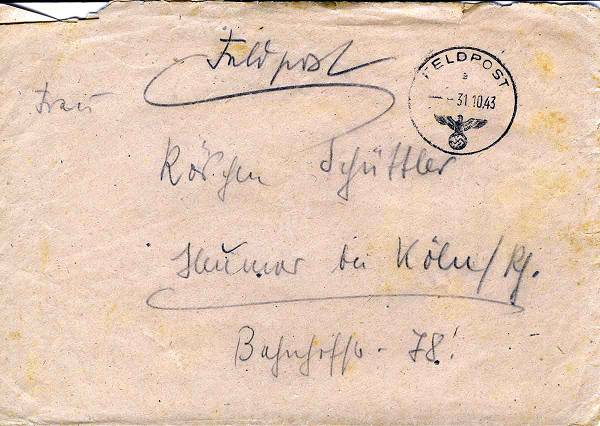 Feldpost
FELDPOST
a
- -31.10.43
Frau
Röschen Schüttler
Heumar bei Köln/Rh.
Bahnhofstr. 78!